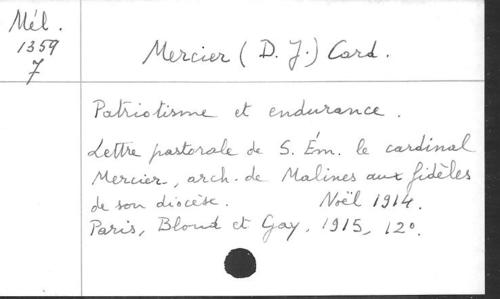 Mél.
1359
7
Mercier (D. J.) Card.
Patriotisme et endurance.
Lettre pastorale de S. Ém. le cardinal
Mercier, arch. de Malines aux fidèles
de son diocèse. Noël 1914.
Paris, Bloud et Gay, 1915, 12°.